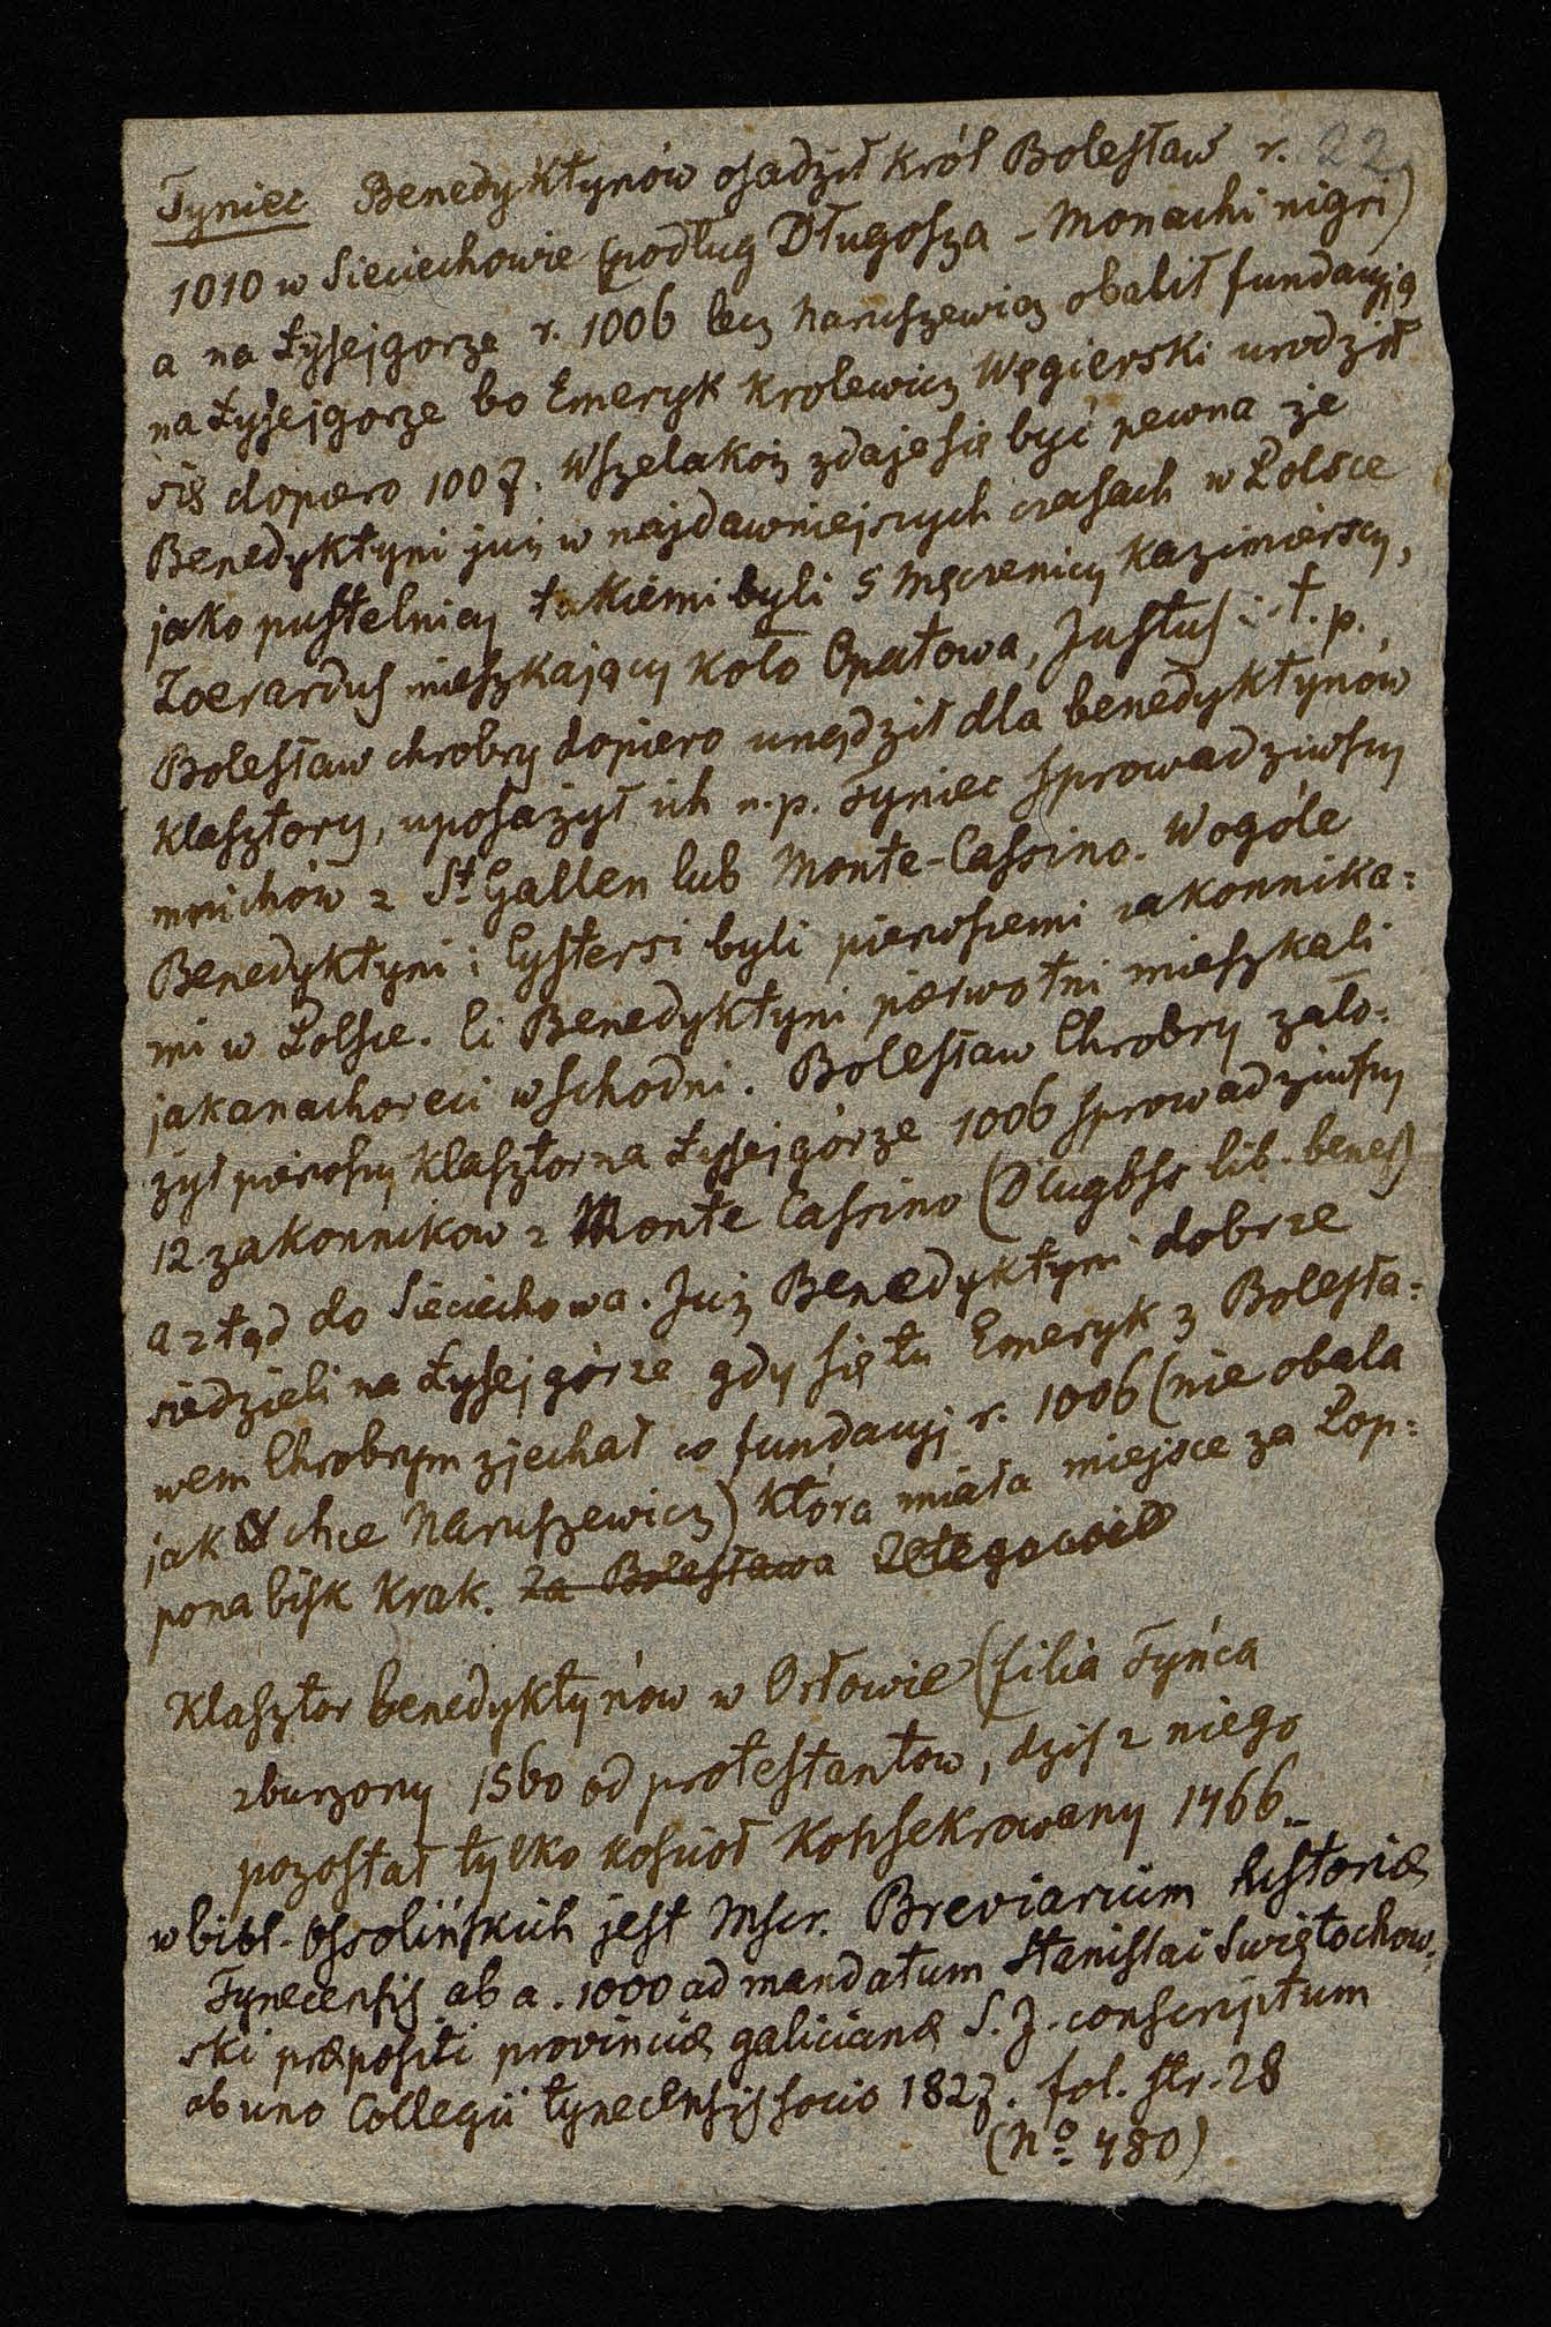 Tyniec Benedyktynów osadził król Bolesław r. 22
1010 w Sieciechowie (podług Długosza - Monachi nigri)
a na Łysejgorze r. 1006 lecz Naruszewicz obalił fundacyją
na Łysejgorze bo Emeryk Krolewicz Węgierski urodził
się dopiero 1007. Wszelakoż zdaje się być pewna że
Benedyktyni już w najdawniejszych czasach w Polsce
jako pustelnicy takiemi byli 5 Męczenicy Kazimierscy,
Zoerardus mieszkający koło Opatowa, Justus i t. p.
Bolesław chrobry dopiero urządził dla benedyktynów
klasztory, uposażył ich n.p. Tyniec sprowadziwszy
mnichów z St Gallen lub Monte-Cassino. Wogóle
Benedyktyni i Cystersi byli pierwszemi zakonnika=
mi w Polsce. Ci Benedyktyni pierwotni mieszkali
jakanachoreci wschodni. Bolesław Chrobry zało=
żył pierwszy klasztor na Łysejgórze 1006 sprowadziwszy
12 zakonnikow z Monte Cassino (Długoss lib. benef)
a ztąd do Sieciechowa. Już Benedyktyni dobrze
siedzieli na Łysej górze gdy się tu Emeryk z Bolesła=
wem Chrobrym zjechał co fundacyj r. 1006 (nie obala
jak chce Naruszewicz) która miała miejsce za Pop=
pona bisk Krak. za Bolesława
Klasztor benedyktynów w Orłowie (filia Tyńca
zburzony 1560 od protestantow, dziś z niego
pozostał tylko kościoł Konsekrowany 1466.
w bibl. Ossolińskich jest Mscr. Breviarium historiæ
Tynecensis ab a. 1000 ad mandatum Stanislai Swiętochow=
ski præpositi provinciæ galicianæ S. J. conscriptum
ab uno Collegii tynecensis socio 1827. fol. str. 28
(No 480)